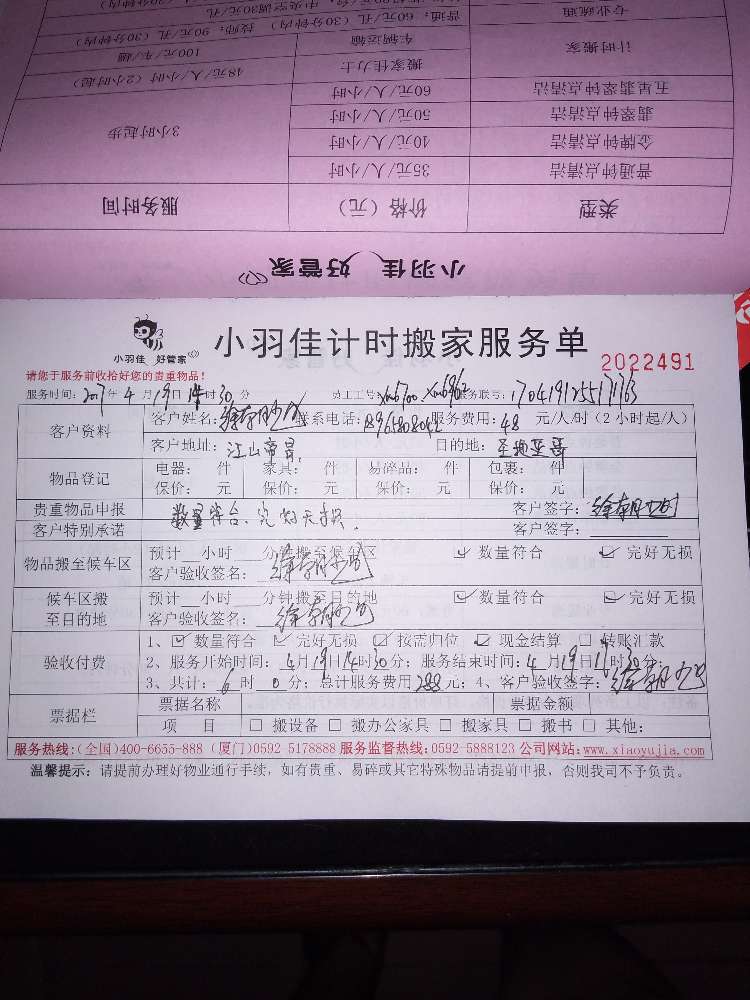 专业疏通
普通：60元/孔（30分钟内） 技师：90元/孔（30分钟内）
计时搬家
车辆运输 100元/车/趟
搬家佳力士 48元/人/小时（2小时起）
五星翡翠钟点清洁 60元/人/小时
翡翠钟点清洁 50元/人/小时
金牌钟点清洁 40元/人/小时
普通钟点清洁 35元/人/小时
3小时起步
类型 价格（元） 服务时间
小羽佳 好管家
小羽佳 好管家
小羽佳计时搬家服务单
2022491
请您于服务前收拾好您的贵重物品！
服务时间：2017年4月19日14时30分 员工工号：xm6700 xm6962 业务联号：170419125517163
客户资料 客户姓名： 联系电话： 服务费用：48 元/人/时(2小时起/人)
客户地址：江山帝景 目的地：圣地亚哥
物品登记 电器： 件 家具： 件 易碎品： 件 包裹： 件
保价： 元 保价： 元 保价： 元 保价： 元
贵重物品申报 数量符合、完好无损. 客户签字：
客户特别承诺 客户签字：
物品搬至候车区 预计 小时 分钟搬至候车区 ☑数量符合 ☑完好无损
客户验收签名：
候车区搬至目的地 预计 小时 分钟搬至目的地 ☑数量符合 ☑完好无损
客户验收签名：
验收付费 1、☑数量符合 ☑完好无损 ☑按需归位 ☑现金结算 □转账汇款
2、服务开始时间：4月19日14时30分；服务结束时间：4月19日17时30分；
3、共计：6时0分；总计服务费用288元；4、客户验收签字：
票据栏 票据名称 票据金额
项 目 □搬设备 □搬办公家具 □搬家具 □搬书 □其他:
服务热线:(全国)400-6655-888 (厦门)0592-5178888 服务监督热线:0592-5888123 公司网站:www.xiaoyujia.com
温馨提示：请提前办理好物业通行手续，如有贵重、易碎或其它特殊物品请提前申报，否则我司不予负责。